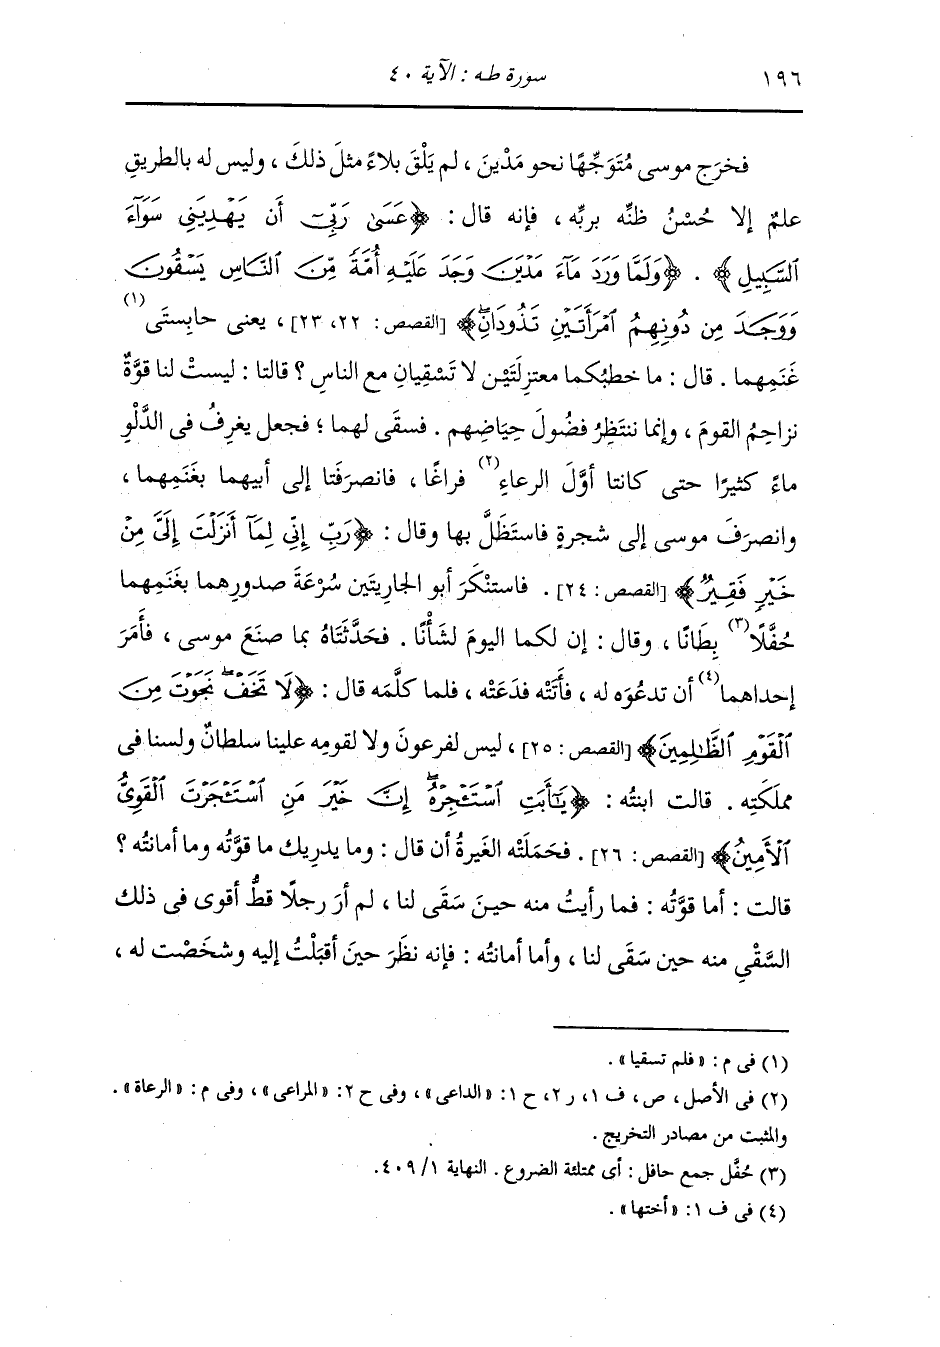 ١٩٦
سورة طه : الآية ٤٠
فخرَج موسى مُتَوَجِّهًا نحو مَدْينَ ، لم يَلْقَ بلاءً مثلَ ذلكَ ، وليس له بالطريقِ
علمٌ إلا حُسْنُ ظنِّه بربِّه ، فإنه قال : ﴿عَسَىٰ رَبِّىٓ أَن يَهْدِيَنِى سَوَآءَ
ٱلسَّبِيلِ﴾ . ﴿وَلَمَّا وَرَدَ مَآءَ مَدْيَنَ وَجَدَ عَلَيْهِ أُمَّةً مِّنَ ٱلنَّاسِ يَسْقُونَ
وَوَجَدَ مِن دُونِهِمُ ٱمْرَأَتَيْنِ تَذُودَانِۖ﴾ [القصص : ٢٢، ٢٣] ، يعنى حابِستَى(١)
غَنَمِهما . قال : ما خطبُكما معتزِلتَيْن لا تَسْقِيانِ مع الناسِ ؟ قالتا : ليستْ لنا قوَّةٌ
نزاحِمُ القومَ ، وإنما ننتَظِرُ فضُولَ حِيَاضِهم . فسقَى لهما ؛ فجعل يغرِفُ فى الدَّلْوِ
ماءً كثيرًا حتى كانتا أوَّلَ الرعاءِ(٢) فراغًا ، فانصرَفتا إلى أبيهما بغَنَمِهما ،
وانصرَفَ موسى إلى شجرةٍ فاستَظَلَّ بها وقال : ﴿رَبِّ إِنِّى لِمَآ أَنزَلْتَ إِلَىَّ مِنْ
خَيْرٍ فَقِيرٌ﴾ [القصص : ٢٤] . فاستنْكَرَ أبو الجاريتَين سُرْعَةَ صدورِهما بغَنَمِهما
حُفَّلًا(٣) بِطَانًا ، وقال : إن لكما اليومَ لشَأْنًا . فحَدَّثتَاهُ بما صنَعَ موسى ، فأَمَرَ
إحداهما(٤) أن تدعُوَه له ، فأَتَتْه فدَعَتْه ، فلما كلَّمه قال : ﴿لَا تَخَفْۖ نَجَوْتَ مِنَ
ٱلْقَوْمِ ٱلظَّٰلِمِينَ﴾ [القصص : ٢٥] ، ليس لفرعونَ ولا لقومِه علينا سلطانٌ ولسنا فى
مملكَتِه . قالت ابنتُه : ﴿يَٰٓأَبَتِ ٱسْتَـْٔجِرْهُۖ إِنَّ خَيْرَ مَنِ ٱسْتَـْٔجَرْتَ ٱلْقَوِىُّ
ٱلْأَمِينُ﴾ [القصص : ٢٦] . فحَمَلَتْه الغَيرةُ أن قال : وما يدرِيك ما قوَّتُه وما أمانتُه ؟
قالت : أما قوَّتُه : فما رأيتُ منه حينَ سَقَى لنا ، لم أرَ رجلًا قطُّ أقوى فى ذلك
السَّقْيِ منه حين سَقَى لنا ، وأما أمانتُه : فإنه نظَرَ حينَ أقبَلْتُ إليه وشخَصْت له ،
(١) فى م : « فلم تسقيا » .
(٢) فى الأصل ، ص ، ف ١، ر ٢، ح ١: « الداعى » ، وفى ح ٢: « المراعى » ، وفى م : « الرعاة » .
والمثبت من مصادر التخريج .
(٣) حُفَّل جمع حافل : أى ممتلئة الضروع . النهاية ١/ ٤٠٩.
(٤) فى ف ١: « أختها » .